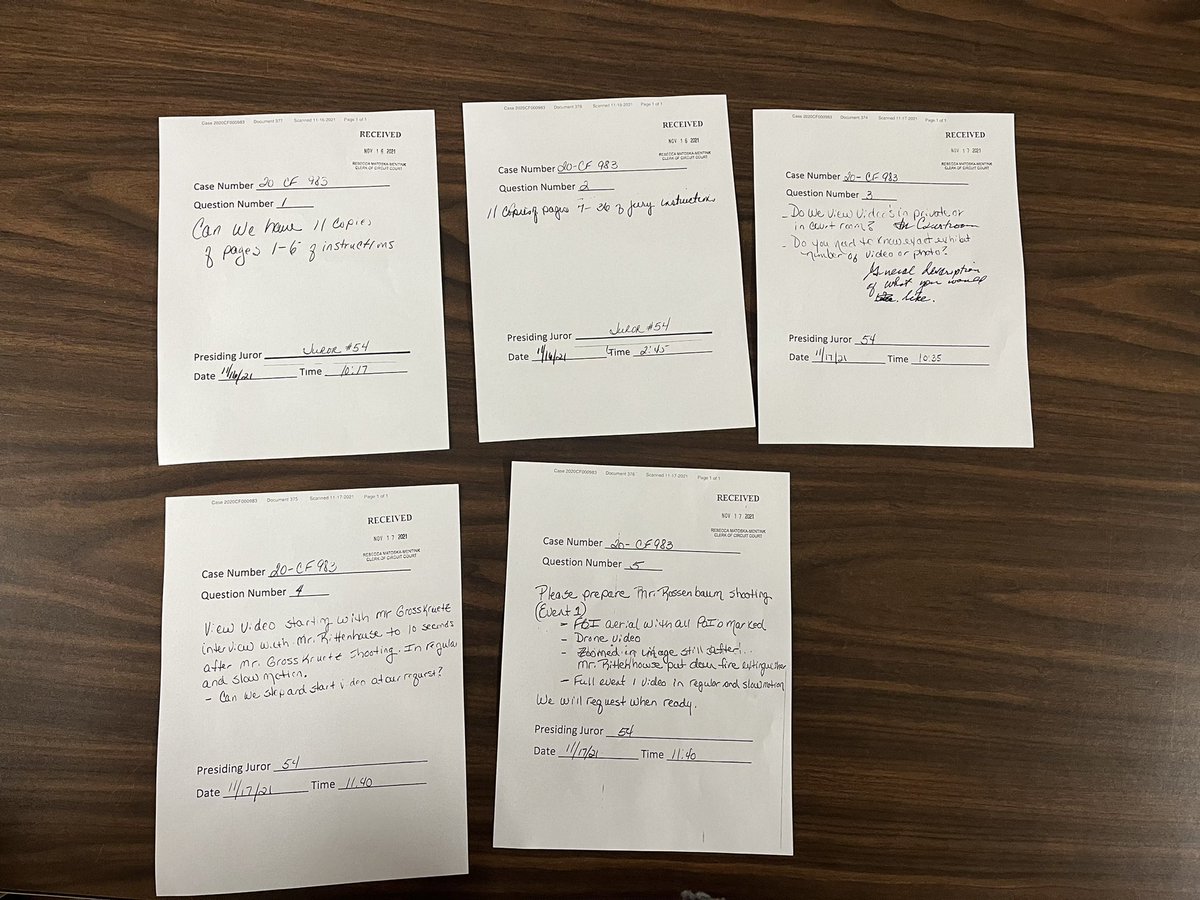 Case 2020CF000983 Document 377 Scanned 11-16-2021 Page 1 of 1
RECEIVED
NOV 16 2021
REBECCA MATOSKA-MENTINK
CLERK OF CIRCUIT COURT
Case Number 20 CF 983
Question Number 1
Can we have 11 copies
of pages 1-6 of instructions
Presiding Juror Juror #54
Date 11/16/21 Time 10:17
Case 2020CF000983 Document 378 Scanned 11-16-2021 Page 1 of 1
RECEIVED
NOV 16 2021
REBECCA MATOSKA-MENTINK
CLERK OF CIRCUIT COURT
Case Number 20-CF 983
Question Number 2
11 copies of pages 7-36 of jury instructions
Presiding Juror Juror #54
Date 11/16/21 Time 2:45
Case 2020CF000983 Document 374 Scanned 11-17-2021 Page 1 of 1
RECEIVED
NOV 17 2021
REBECCA MATOSKA-MENTINK
CLERK OF CIRCUIT COURT
Case Number 20-CF 983
Question Number 3
- Do we view video's in private or
in court room? In Courtroom
- Do you need to know exact exhibit
number of video or photo?
General description
of what you would
like.
Presiding Juror 54
Date 11/17/21 Time 10:35
Case 2020CF000983 Document 375 Scanned 11-17-2021 Page 1 of 1
RECEIVED
NOV 17 2021
REBECCA MATOSKA-MENTINK
CLERK OF CIRCUIT COURT
Case Number 20-CF 983
Question Number 4
View video starting with Mr Grosskruetz
interview with Mr. Rittenhouse to 10 seconds
after Mr. Grosskruetz shooting. In regular
and slow motion.
- Can we stop and start video at our request?
Presiding Juror 54
Date 11/17/21 Time 11:40
Case 2020CF000983 Document 376 Scanned 11-17-2021 Page 1 of 1
RECEIVED
NOV 17 2021
REBECCA MATOSKA-MENTINK
CLERK OF CIRCUIT COURT
Case Number 20-CF 983
Question Number 5
Please prepare Mr. Rossenbaum shooting
(Event 1)
- FBI aerial with all POIs marked
- Drone video
- Zoomed in image still after
Mr. Rittenhouse put down fire extinguisher
- Full event 1 video in regular and slow motion
We will request when ready.
Presiding Juror 54
Date 11/17/21 Time 11:40